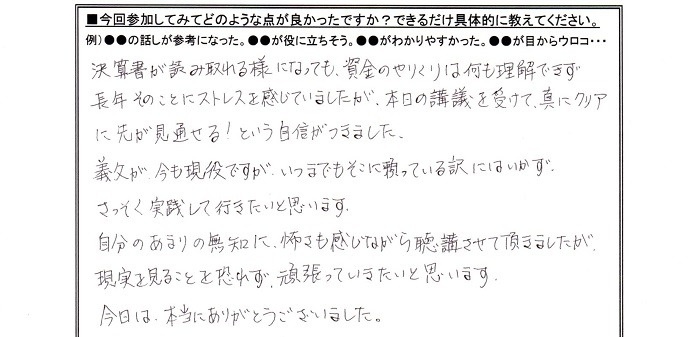 ■今回参加してみてどのような点が良かったですか？できるだけ具体的に教えてください。
例）●●の話しが参考になった。●●が役に立ちそう。●●がわかりやすかった。●●が目からウロコ・・・
決算書が読み取れる様になっても、資金のやりくりは何も理解できず
長年そのことにストレスを感じていましたが、本日の講議を受けて、真にクリア
に先が見通せる！という自信がつきました、
義父が、今も現役ですが、いつまでもそこに頼っている訳にはいかず、
さっそく実践して行きたいと思います、
自分のあまりの無知に、怖さも感じながら聴講させて頂きましたが、
現実を見ることを恐れず、頑張っていきたいと思います、
今日は、本当にありがとうございました。